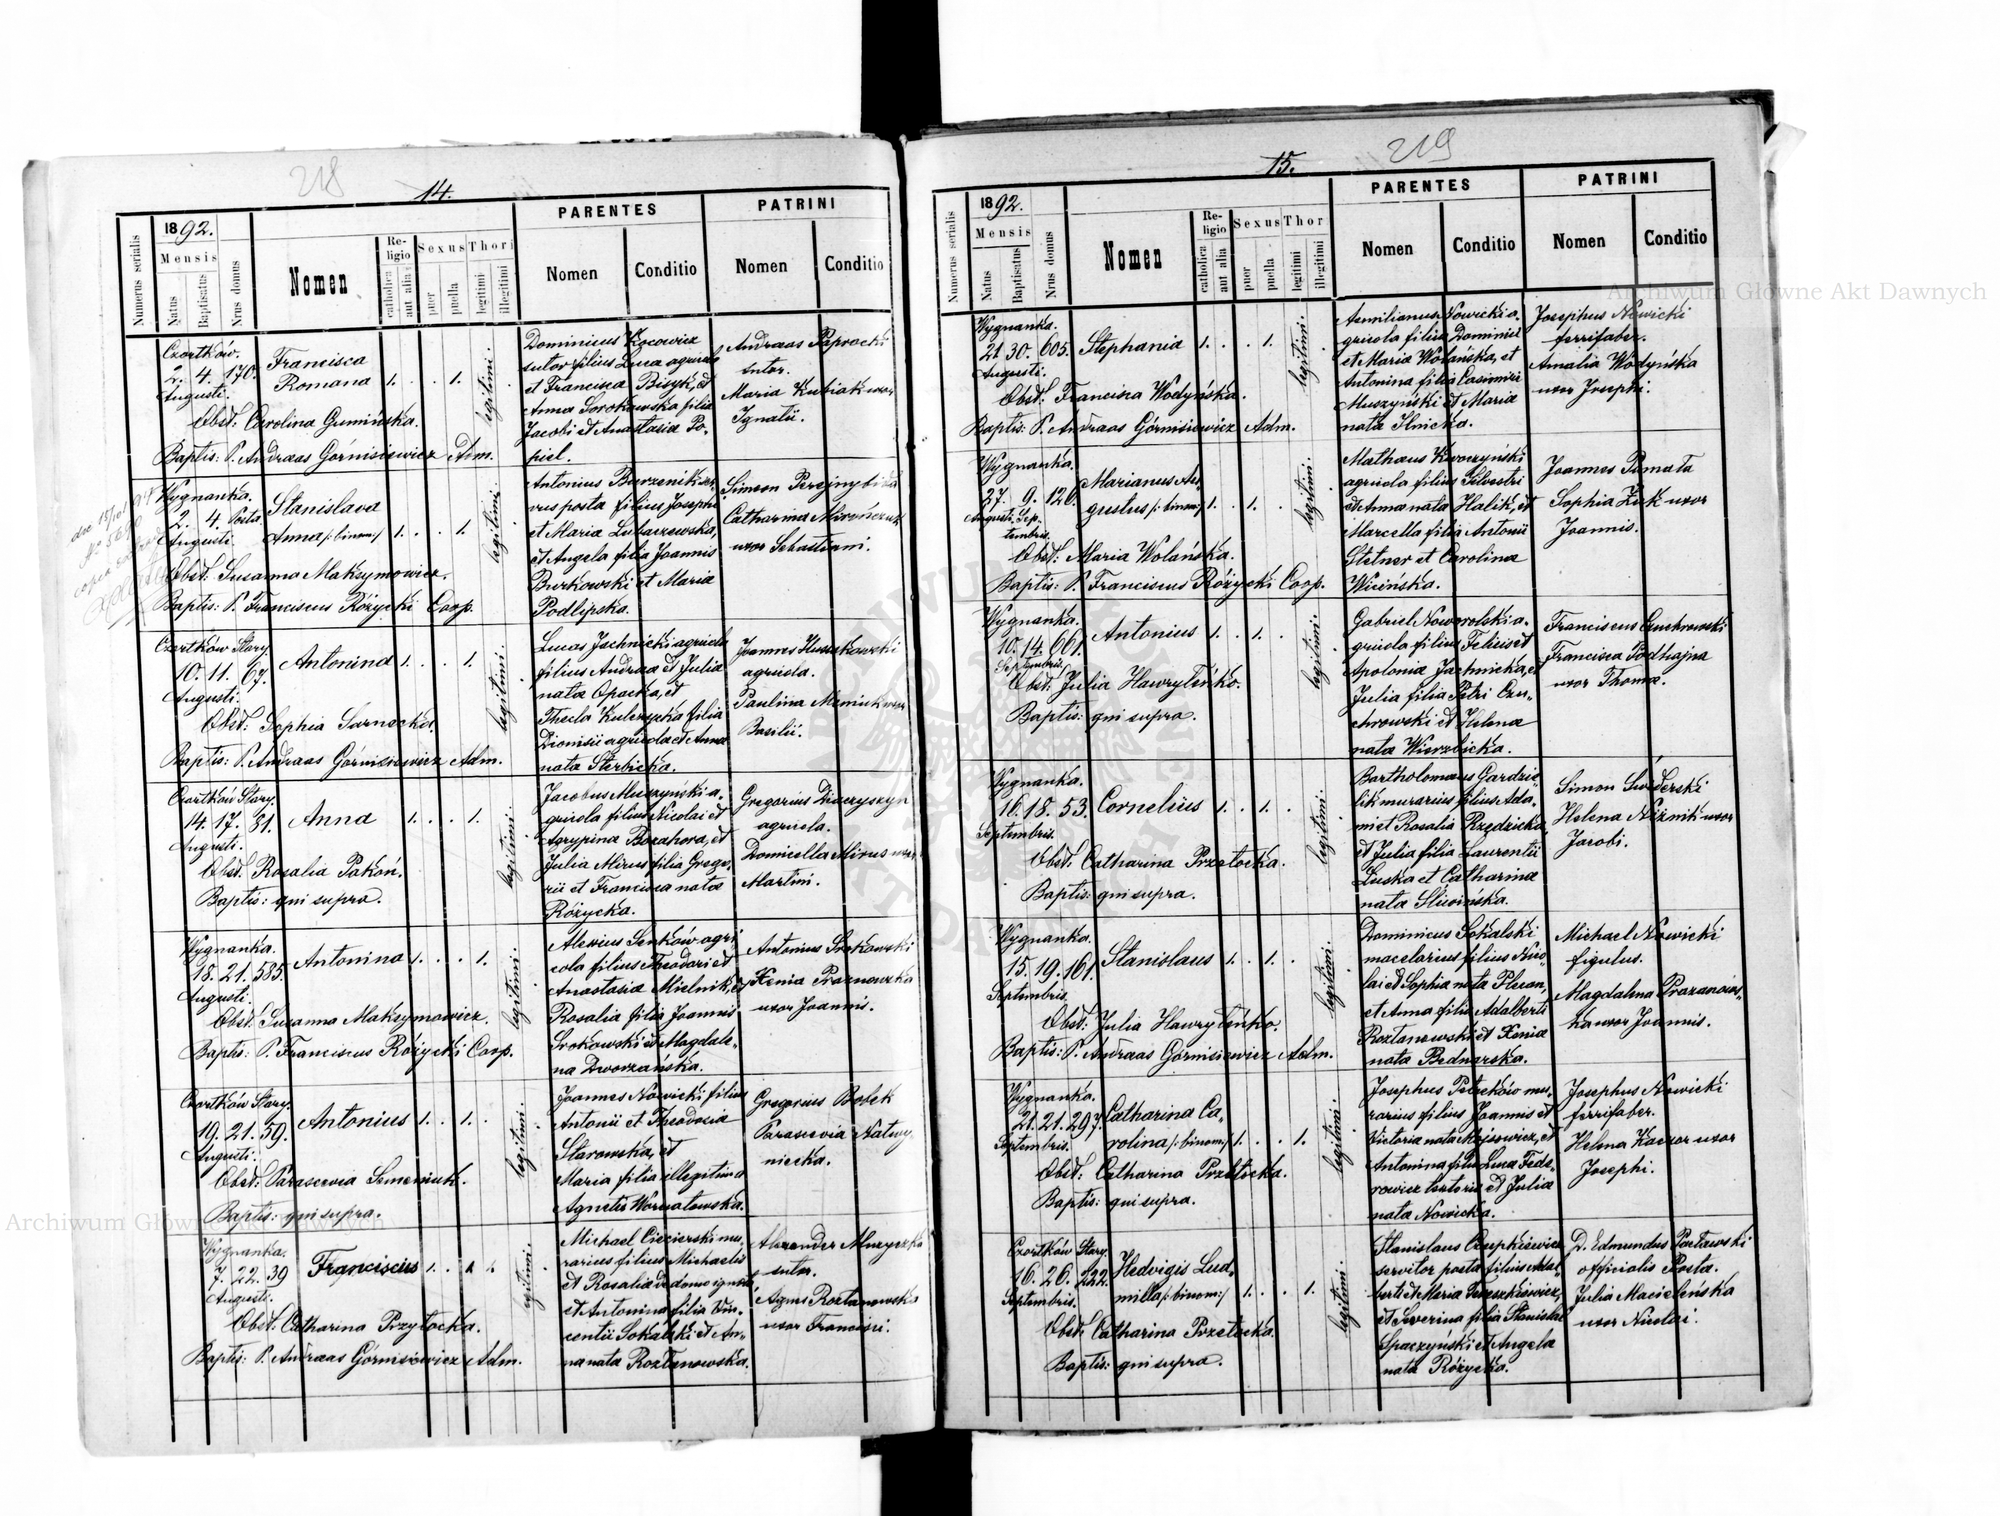 218
14.
Numerus serialis
1892.
Mensis
Natus
Baptisatus
Nrus domus
Nomen
Religio
catholica
aut alia
Sexus
puer
puella
Thori
legitimi
illegitimi
PARENTES
Nomen
Conditio
PATRINI
Nomen
Conditio
Czortków.
2. 4. 170.
Augusti.
Francisca
Romana
1. . . 1.
legitimi.
Obst: Carolina Gumińska.
Baptis: P. Andreas Górnisiewicz Adm.
Dominicus Kocowicz
sutor filius Luca agricola
et Francisca Bisyk, et
Anna Sorokowska filia
Jacobi et Anastasia Po-
piel.
Andreas Paprocki
sutor.
Maria Kubiak uxor
Ignatii.
Wygnanka.
2. 4. Posta
Augusti.
Stanislava
Anna /:binom:/
1. . . 1.
legitimi.
Obst: Susanna Maksymowicz.
Baptis: P. Franciscus Różycki Coop.
Antonius Burzenik ser-
vus posta filius Josephi
et Maria Lubaczewska,
et Angela filia Joannis
Burkowski et Maria
Podlipska.
Simeon
Catharina
uxor Sebastiani.
Czortków Stary.
10. 11. 67.
Augusti.
Antonina
1. . . 1.
legitimi.
Obst: Sophia Sarnecka.
Baptis: P. Andreas Górnisiewicz Adm.
Lucas Jachnicki agricola
filius Andrea et Julia
nata Opacka, et
Thecla Kulczycka filia
Dionisii agricola et Anna
nata Sterbicka.
Joannes
agricola.
Paulina uxor
Basilii.
Czortków Stary.
14. 17. 81.
Augusti.
Anna
1. . . 1.
legitimi.
Obst: Rosalia Pakoń.
Baptis: qui supra.
Jacobus Muszyński a-
gricola filius Nicolai et
Agrypina Bozahora, et
Julia Mirus filia Grego-
rii et Francisca nata
Różycka.
Gregorius
agricola.
Domicella Mirus uxor
Martini.
Wygnanka.
18. 21. 585.
Augusti.
Antonina
1. . . 1.
legitimi.
Obst: Susanna Maksymowicz.
Baptis: P. Franciscus Różycki Coop.
Alexius Senków agri-
cola filius Theodori et
Anastasia Mielnik, et
Rosalia filia Joannis
Srokowski et Magdale-
na Dworzańska.
Antonius Srokowski
Xenia Praznowska
uxor Joannis.
Czortków Stary.
19. 21. 59.
Augusti.
Antonius
1. . 1. .
legitimi.
Obst: Parascevia Semeniuk.
Baptis: qui supra.
Joannes Nowicki filius
Antonii et Theodosia
Starowska, et
Maria filia illegitima
Agnetis Wornatowska.
Gregorius Bobek
Parascevia
Wygnanka.
7. 22. 39
Augusti.
Franciscus
1. . 1.
Obst: Catharina Przytocka.
Baptis: P. Andreas Górnisiewicz Adm.
Michael Ciecierski mu-
rarius filius Michaelis
et Rosalia de domo ignota,
et Antonina filia Vin-
centii Sokalski et An-
na nata Roztanowska.
Alexander Muzyczka
sutor.
Agnes Roztanowska
uxor Francisci.
219
15.
Numerus serialis
1892.
Mensis
Natus
Baptisatus
Nrus domus
Nomen
Religio
catholica
aut alia
Sexus
puer
puella
Thor
legitimi
illegitimi
PARENTES
Nomen
Conditio
PATRINI
Nomen
Conditio
Wygnanka.
21. 30. 605.
Augusti.
Stephania
1. . . 1.
legitimi.
Obst: Francisca Wodyńska.
Baptis: P. Andreas Górnisiewicz Adm.
Aemilianus Nowicki a-
gricola filius Dominici
et Maria Wolańska, et
Antonina filia Casimiri
Muszyński et Maria
nata Ilnicka.
Josephus Nowicki
ferrifaber.
Amalia Wodyńska
uxor Josephi.
Wygnanka.
27. 9. 126.
Augusti. Sep-
tembris.
Marianus Au-
gustus /:binom:/
1. . 1. .
legitimi.
Obst: Maria Wolańska.
Baptis: P. Franciscus Różycki Coop.
Mathaus Kroczyński
agricola filius Silvestri
et Anna nata Halik, et
Marcella filia Antonii
Stelner et Carolina
Wicińska.
Joannes Pamata
Sophia Żuk uxor
Joannis.
Wygnanka.
10. 14. 661.
Septembris.
Antonius
1. . 1.
legitimi.
Obst: Julia Hawryleńko.
Baptis: qui supra.
Gabriel Noworolski a-
gricola filius Felicis et
Apolonia Jachnicka, et
Julia filia Petri Czu-
chrowski et Helena
nata Wierzbicka.
Franciscus Czuchrowski
Francisca Podhajna
uxor Thoma.
Wygnanka.
16. 18. 53.
Septembris.
Cornelius
1. . 1. .
legitimi.
Obst: Catharina Przetocka.
Baptis: qui supra.
Bartholomeus Gardzie-
lik murarius filius Ada-
mi et Rosalia Rzędzicka,
et Julia filia Laurentii
Luska et Catharina
nata Śliwińska.
Simon Świderski
Helena Niżnik uxor
Jacobi.
Wygnanka.
15. 19. 161.
Septembris.
Stanislaus
1. . 1. .
legitimi.
Obst: Julia Hawryleńko.
Baptis: P. Andreas Górnisiewicz Adm.
Dominicus Sokalski
macelarius filius Nico-
lai et Sophia nata Pleron,
et Anna filia Adalberti
Roztanowski et Xenia
nata Bednarska.
Michael Nowicki
figulus.
Magdalena Prazanows-
ka uxor Joannis.
Wygnanka.
21. 21. 297.
Septembris.
Catharina Ca-
rolina /:binom:/
1. . . 1.
legitimi.
Obst: Catharina Przetocka.
Baptis: qui supra.
Josephus Petryków mu-
rarius filius Joannis et
Victoria nata Mojsowicz, et
Antonina filia Luca Fede-
rowicz textoris et Julia
nata Nowicka.
Josephus Nowicki
ferrifaber.
Helena Kaczor uxor
Josephi.
Czortków Stary.
16. 26. 222.
Septembris.
Hedvigis Lud-
milla /:binom:/
1. . . 1.
legitimi.
Obst: Catharina Przetocka.
Baptis: qui supra.
Stanislaus Czupkiewicz
servitor posta filius Adal-
berti et Maria Tereszkiewicz,
et Severina filia Stanislai
Spaczyński et Angela
nata Różycka.
D. Edmundus Pacławski
officialis Posta.
Julia Macieleńska
uxor Nicolai.
Archiwum Główne Akt Dawnych
Archiwum Główne Akt Dawnych